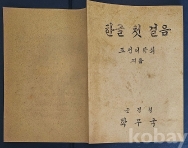 한글 첫 걸음
조선어학회
지음
군정청
학무국
kobay